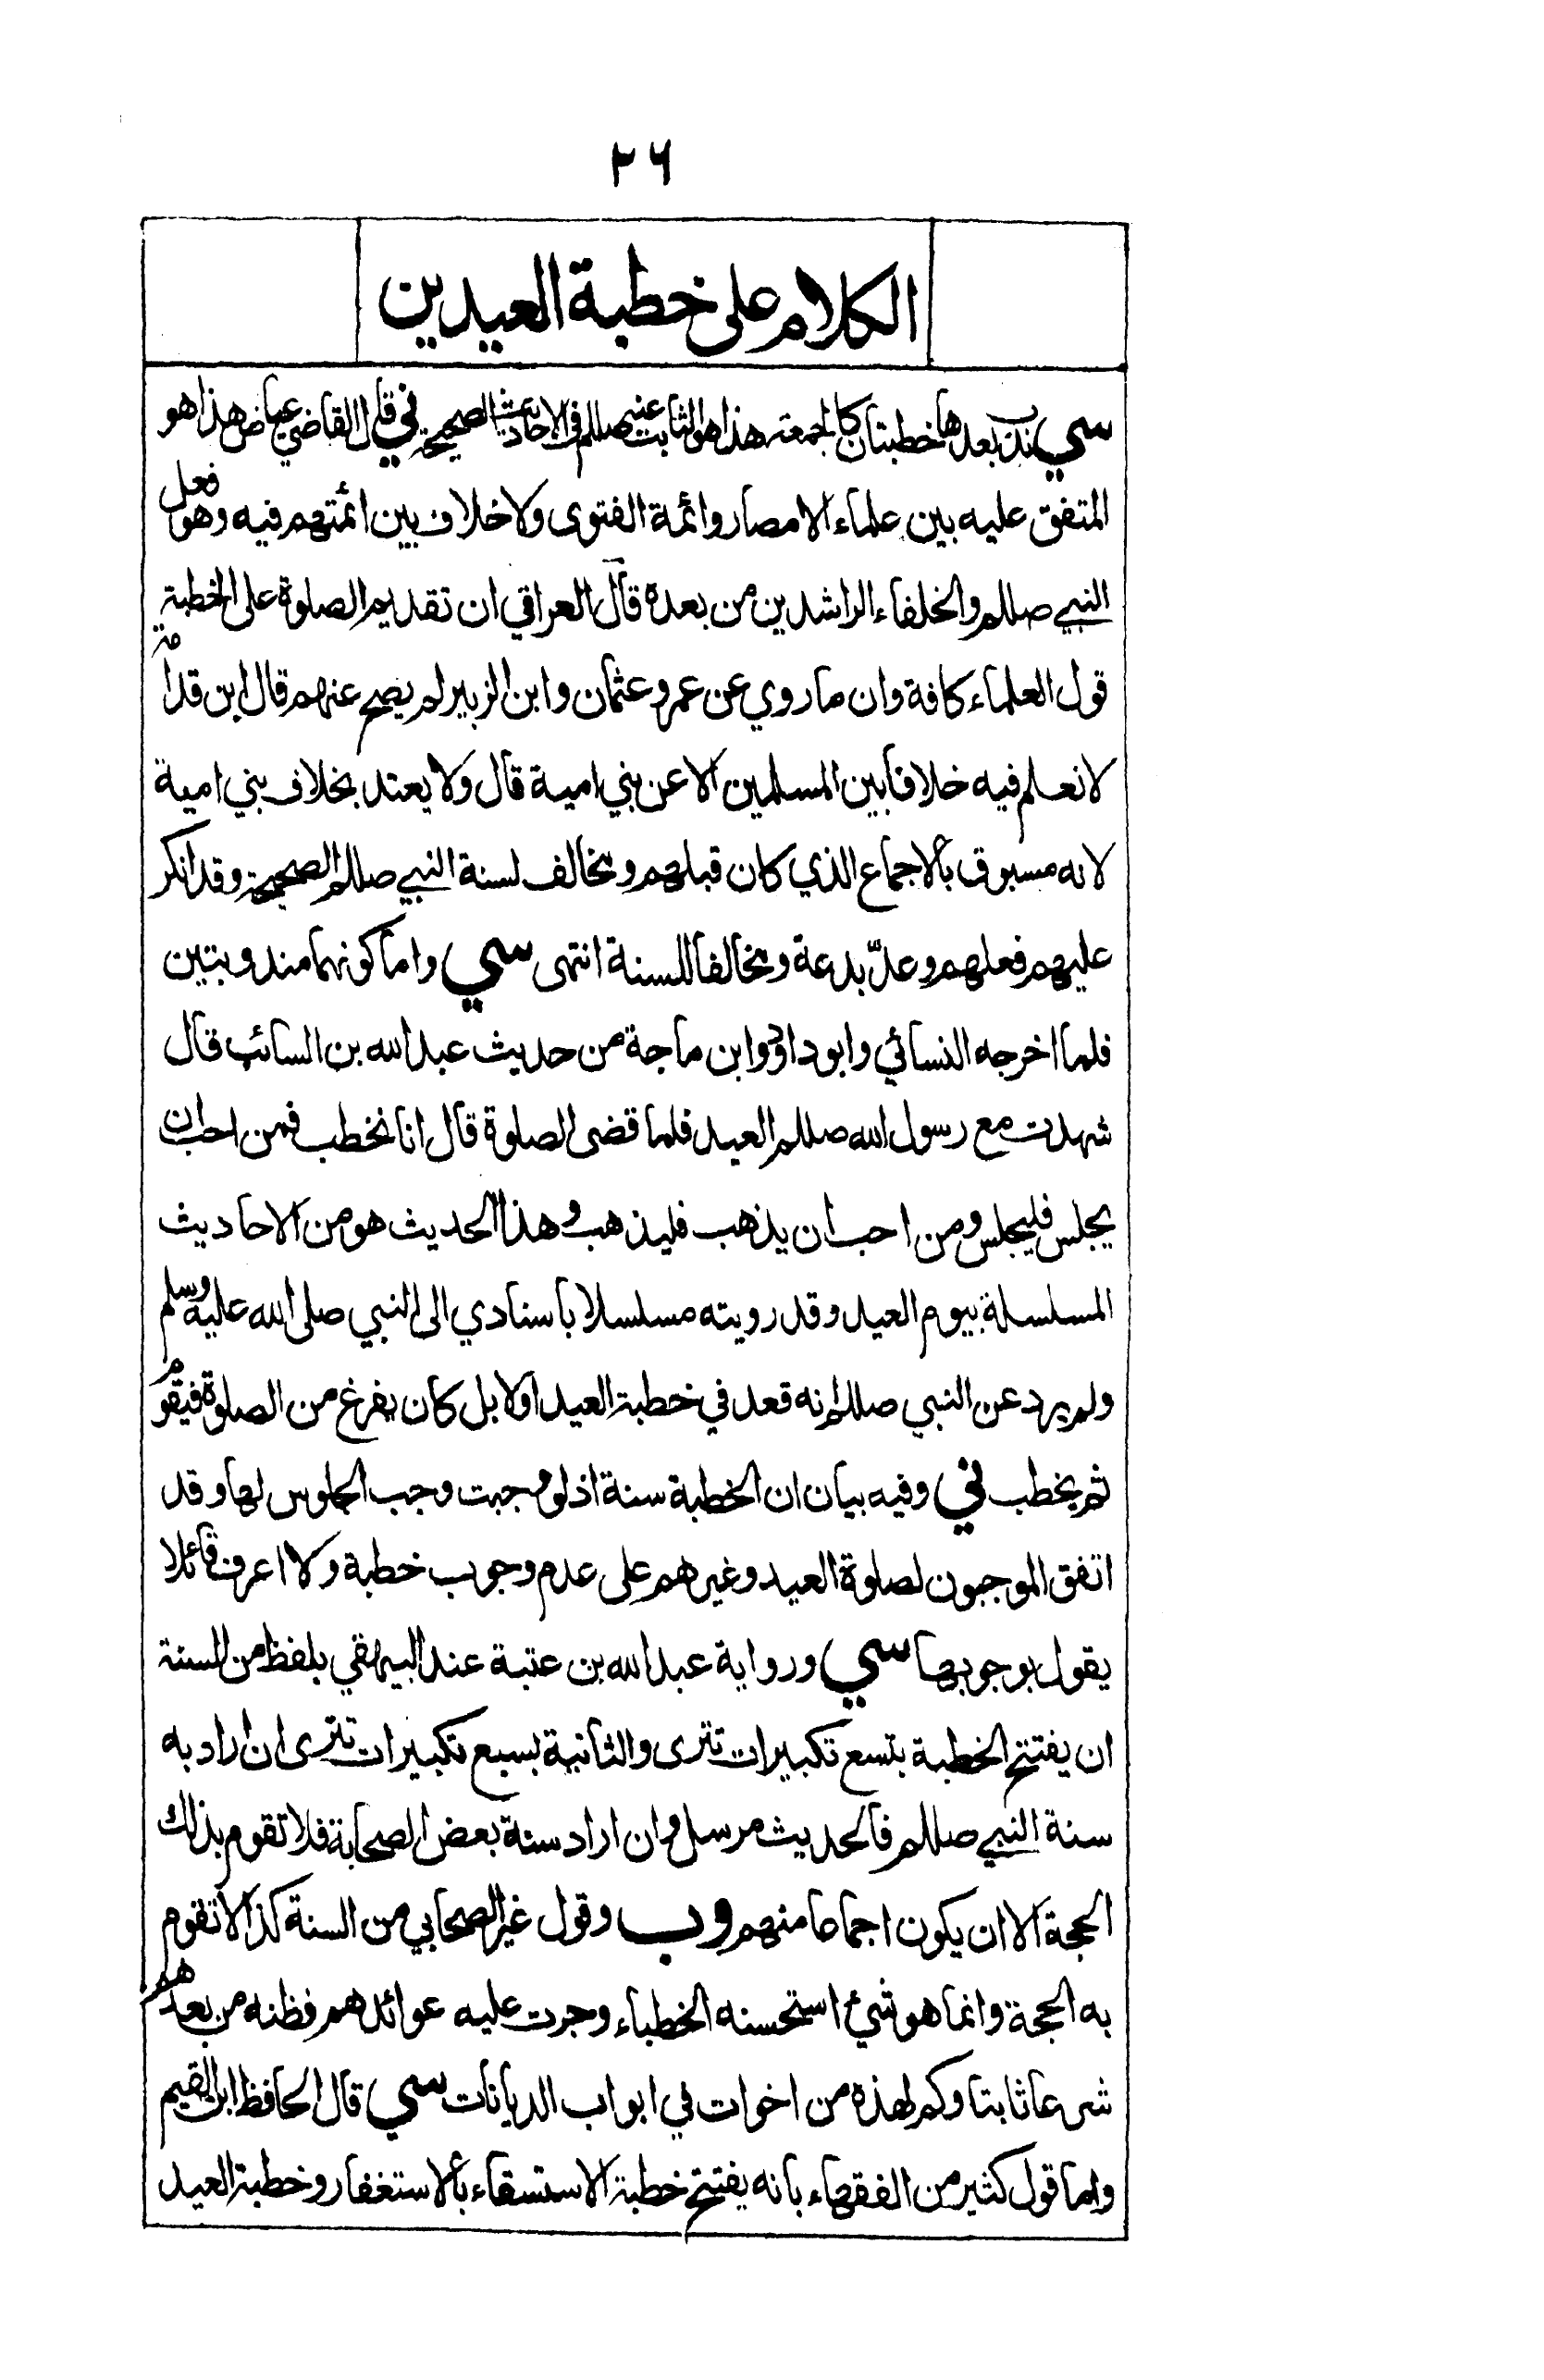 ٢٦
الكلام على خطبة العيدين
سي ندب بعدها خطبتان كالجمعة هذا هو الثابت عنه صللم في الاحاديث الصحيحة ني قال القاضي عياض هذا هو
المتفق عليه بين علماء الامصار وائمة الفتوى ولا خلاف بين ائمتهم فيه وهو فعل
النبي صللم والخلفاء الراشدين من بعده قال العراقي ان تقديم الصلوة على الخطبة
قول العلماء كافة وان ما روي عن عمر وعثمان وابن الزبير لم يصح عنهم قال ابن قدامة
لا نعلم فيه خلافا بين المسلمين الا عن بني امية قال ولا يعتد بخلاف بني امية
لانه مسبوق بالاجماع الذي كان قبلهم ومخالف لسنة النبي صللم الصحيحة وقد انكر
عليهم فعلهم وعدّ بدعة ومخالفا للسنة انتهى سي واما كونهما مندوبتين
فلما اخرجه النسائي وابو داود وابن ماجة من حديث عبد الله بن السائب قال
شهدت مع رسول الله صللم العيد فلما قضى الصلوة قال انا نخطب فمن احب ان
يجلس فليجلس ومن احب ان يذهب فليذهب وهذا الحديث هو من الاحاديث
المسلسلة بيوم العيد وقد رويته مسلسلا باسنادي الى النبي صلى الله عليه وسلم
ولم يرد عن النبي صللم انه قعد في خطبة العيد اولا بل كان يفرغ من الصلوة فيقوم
ثم يخطب ني وفيه بيان ان الخطبة سنة اذ لو وجبت وجب الجلوس لها وقد
اتفق الموجبون لصلوة العيد وغيرهم على عدم وجوب خطبة ولا اعرف قائلا
يقول بوجوبها سي ورواية عبد الله بن عتبة عند البيهقي بلفظ من السنة
ان يفتتح الخطبة بتسع تكبيرات تترى والثانية بسبع تكبيرات تترى ان اراد به
سنة النبي صللم فالحديث مرسل وان اراد سنة بعض الصحابة فلا تقوم بذلك
الحجة الا ان يكون اجماعا منهم وب وقول غير الصحابي من السنة كذا لا تقوم
به الحجة وانما هو شيء استحسنه الخطباء وجرت عليه عوائدهم فظنه من بعدهم
شرعا ثابتا وكم لهذه من اخوات في ابواب الديانات سي قال الحافظ ابن القيم
واما قول كثير من الفقهاء بانه يفتتح خطبة الاستسقاء بالاستغفار وخطبة العيد